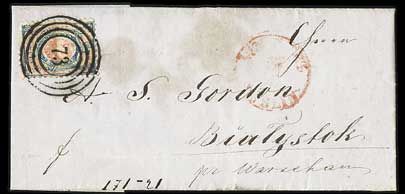 73
Herrn
S. Gordon
Białystok
pr Warschau
171-21